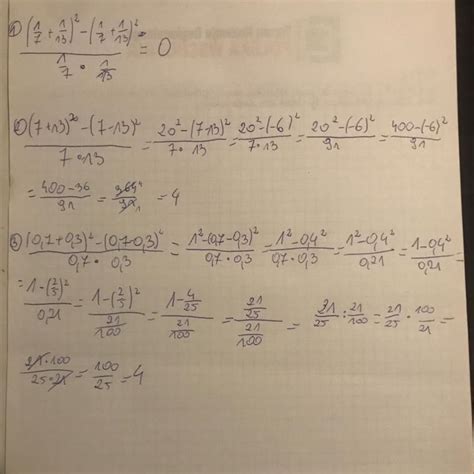 1) ((1/7 + 1/13)² - (1/7 + 1/13)²) / (1/7 · 1/13) = 0
2) ((7+13)² - (7-13)²) / (7·13) = (20² - (7-13)²) / (7·13) = (20² - (-6)²) / (7·13) = (20² - (-6)²) / 91 = (400 - (-6)²) / 91
= (400-36) / 91 = 364 / 91 = 4
3) ((0,7+0,3)² - (0,7-0,3)²) / (0,7 · 0,3) = (1² - (0,7-0,3)²) / (0,7 · 0,3) = (1² - 0,4²) / (0,7 · 0,3) = (1² - 0,4²) / 0,21 = (1 - 0,4²) / 0,21 =
= (1 - (2/5)²) / 0,21 = (1 - (2/5)²) / (21/100) = (1 - 4/25) / (21/100) = (21/25) / (21/100) = 21/25 : 21/100 = 21/25 · 100/21 =
(21 · 100) / (25 · 21) = 100/25 = 4